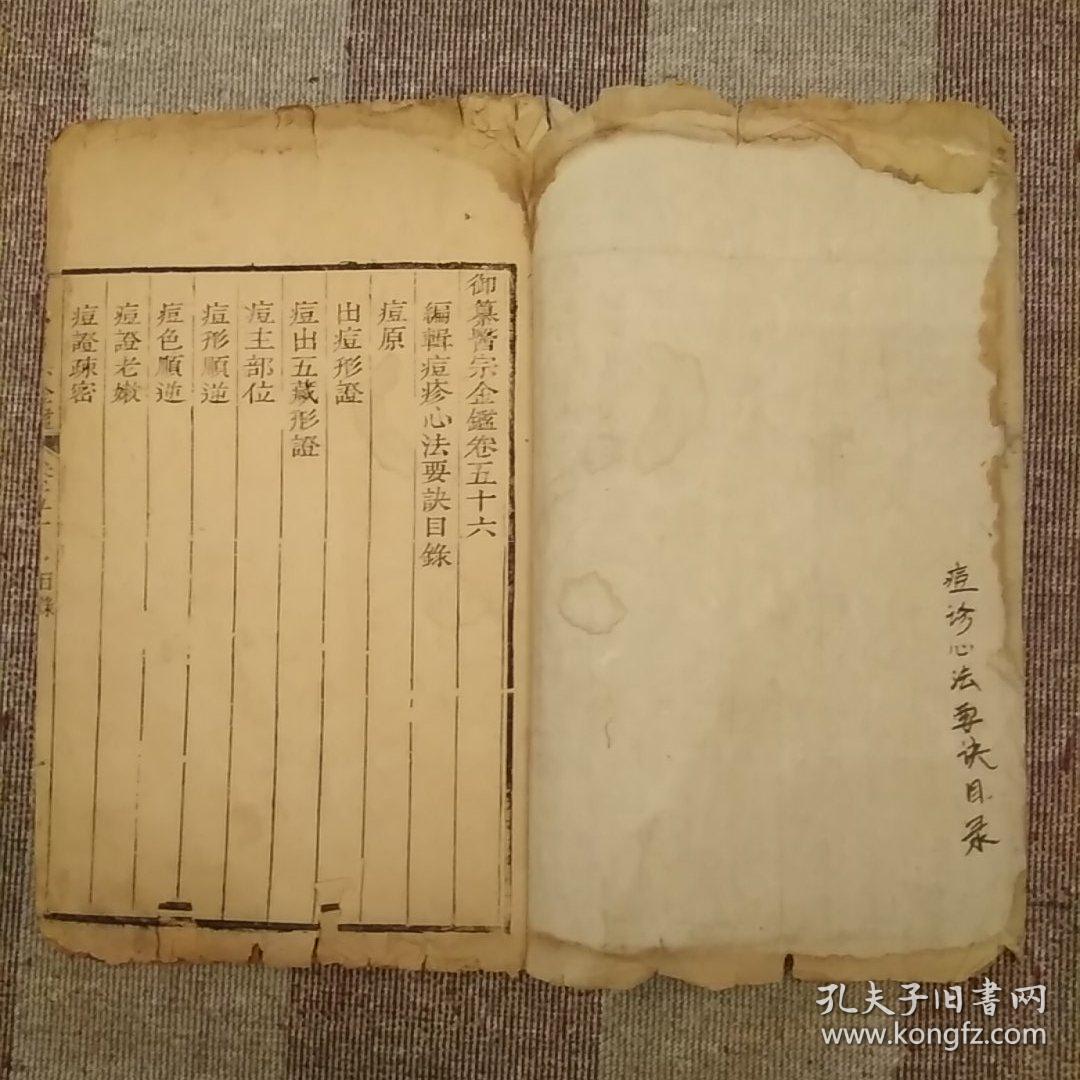 痘疹心法要诀目录
御纂醫宗金鑑卷五十六
編輯痘疹心法要訣目錄
痘原
出痘形證
痘出五藏形證
痘主部位
痘形順逆
痘色順逆
痘證老嫩
痘證疎密
目錄
孔夫子旧书网
www.kongfz.com